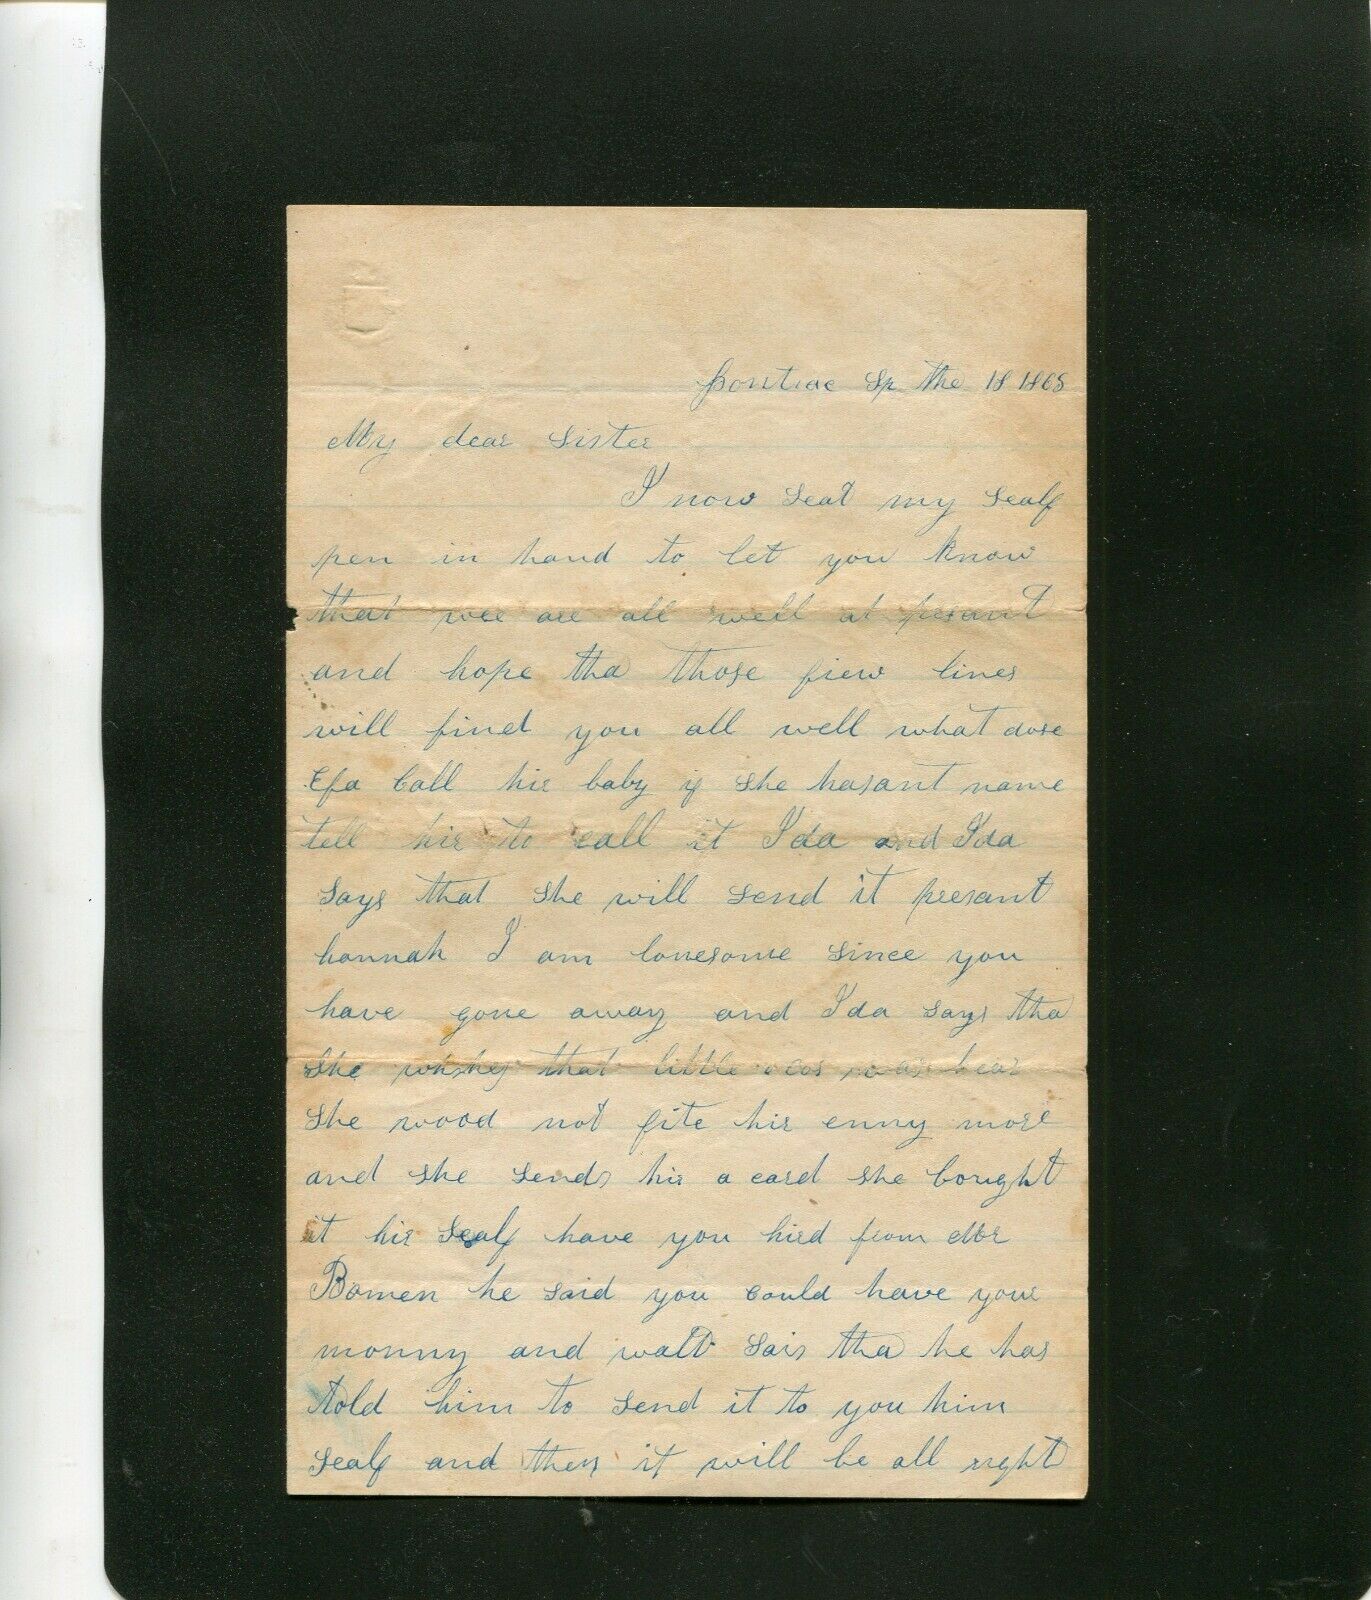 pontiac Sp the 18 1865
My dear Sister
I now Seat my Sealf
pen in hand to let you know
that wee are all well at presant
and hope tha those fiew lines
will find you all well what dose
Efa Call hir baby if She hasant name
tell hir to call it Ida and Ida
Says that She will Send it presant
hannah I am lonesome Since you
have gone away and Ida Says tha
She that little was hear
She wood not fite hir enny more
and She Sends hir a card She bought
it hir Sealf have you hird from Mr
Bomen he Said you Could have your
monny and walt Sais tha he has
told him to Send it to you him
Sealf and then it will be all right